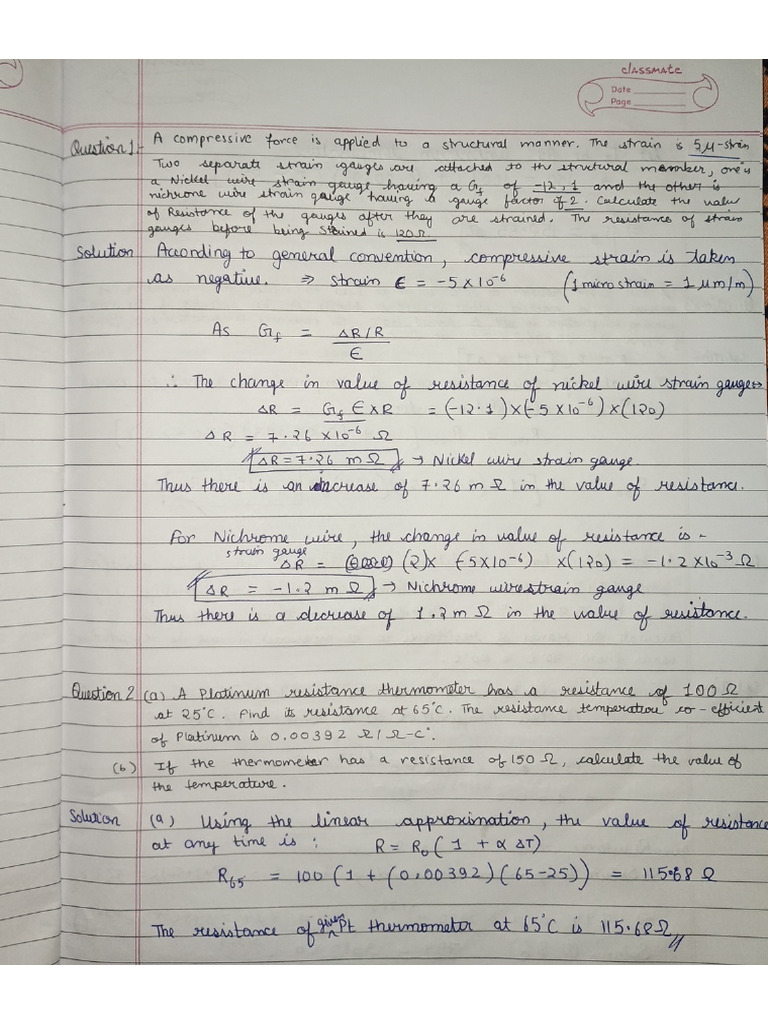 classmate
Date
Page
Question 1:- A compressive force is applied to a structural manner. The strain is 5 μ-strain
Two separate strain gauges are attached to the structural member, one is
a Nickel wire strain gauge having a Gf of -12.1 and the other is
nichrome wire strain gauge having a gauge factor of 2. Calculate the value
of Resistance of the gauges after they are strained. The resistance of strain
gauges before being strained is 120Ω.
Solution According to general convention, compressive strain is taken
as negative. ⇒ strain ε = -5×10⁻⁶ (1 micro strain = 1 μm/m)
As Gf = ΔR/R
ε
∴ The change in value of resistance of nickel wire strain gauge→
ΔR = Gf ε×R = (-12.1)×(-5×10⁻⁶)×(120)
ΔR = 7.26 ×10⁻⁶ Ω
ΔR = 7.26 m Ω → Nickel wire strain gauge.
Thus there is an increase of 7.26 m Ω in the value of resistance.
For Nichrome wire, the change in value of resistance is -
strain gauge
ΔR = (2)× (-5×10⁻⁶) ×(120) = -1.2 ×10⁻³ Ω
ΔR = -1.2 m Ω → Nichrome wire strain gauge
Thus there is a decrease of 1.2 m Ω in the value of resistance.
Question 2 (a) A Platinum resistance thermometer has a resistance of 100 Ω
at 25°C. Find its resistance at 65°C. The resistance temperature co-efficient
of Platinum is 0.00392 Ω/Ω-C°.
(b) If the thermometer has a resistance of 150 Ω, calculate the value of
the temperature.
Solution (a) Using the linear approximation, the value of resistance
at any time is : R = R₀ (1 + α ΔT)
R₆₅ = 100 (1 + (0.00392)(65-25)) = 115.68 Ω
The resistance of given Pt thermometer at 65°C is 115.68 Ω//